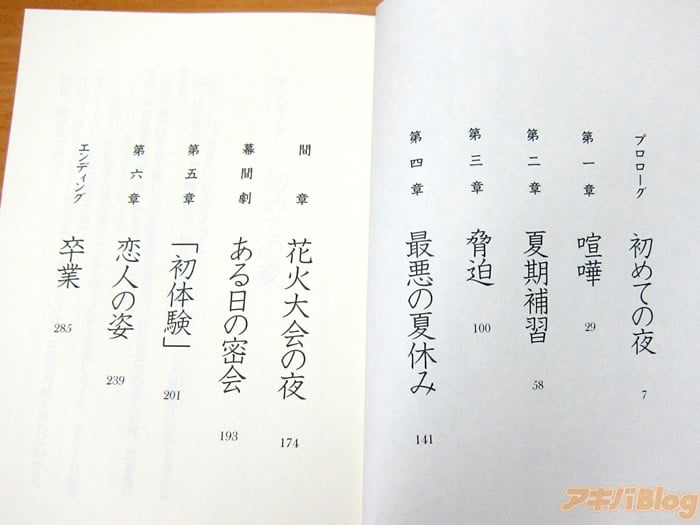 プロローグ 初めての夜 7
第一章 喧嘩 29
第二章 夏期補習 58
第三章 脅迫 100
第四章 最悪の夏休み 141
間章 花火大会の夜 174
幕間劇 ある日の密会 193
第五章 「初体験」 201
第六章 恋人の姿 239
エンディング 卒業 285
アキバBlog